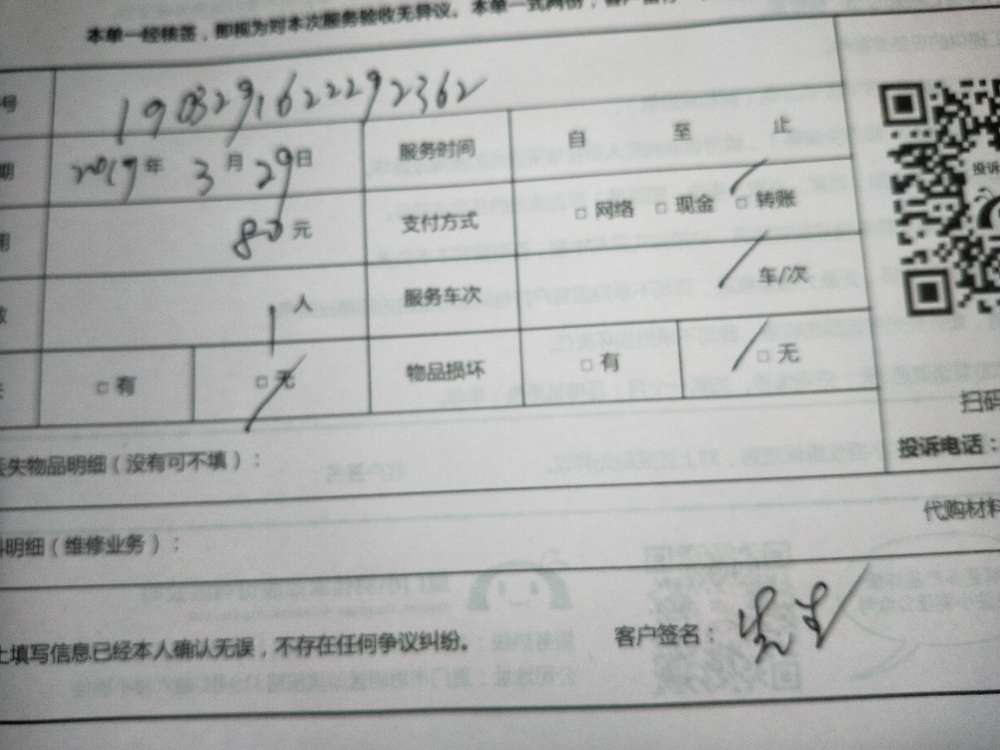 本单一经核签，即视为对本次服务验收无异议。本单一式两份，客户留存
号 1903291622292362
期 2019年 3月29日 服务时间 自 至 止
用 80元 支付方式 □ 网络 □ 现金 □ 转账
数 1人 服务车次 / 车/次
□ 有 □ 无 物品损坏 □ 有 □ 无
投诉
扫码
丢失物品明细（没有可不填）：
投诉电话：
代购材料
料明细（维修业务）：
上填写信息已经本人确认无误，不存在任何争议纠纷。 客户签名： 先生